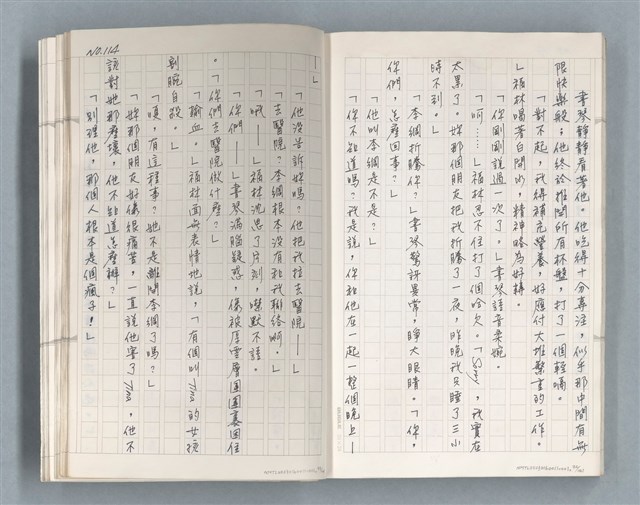 書琴靜靜看著他。他吃得十分專注，似乎那中間有無
限快樂般；他終於推開所有杯盤，打了一個輕嗝。
「對不起，我得補充營養，好應付大堆繁重的工作。
」福林喝著白開水，精神略為好轉。
「你剛剛說過一次了。」書琴語音柔婉。
「呵……」福林忍不住打了個哈欠。「　，我實在
太累了。妳那個朋友把我折騰了一夜，昨晚我只睡了三小
時不到。」
「李綢折騰你？」書琴驚訝異常，睜大眼睛。「你，
你們，怎麼回事？」
「他叫李綢是不是？」
「你不知道嗎？我是說，你和他在一起一整個晚上—
—」
「他沒告訴妳嗎？他把我拉去醫院——」
「去醫院？李綢根本沒有和我聯絡啊。」
「哦——」福林沈思了片刻，噤默不語。
「你們——」書琴滿腦疑惑，像被層雲層團團裹困住
。「你們去醫院做什麼？」
「輸血。」福林面無表情地說，「有個叫Tina的女孩
割腕自殺。」
「嗄，有這種事？她不是離開李綢了嗎？」
「妳那個朋友好像很痛苦，一直說他害了Tina，他不
該對她那麼壞，他不知道怎麼辦？」
「別理他，那個人根本是個瘋子！」
NO.114